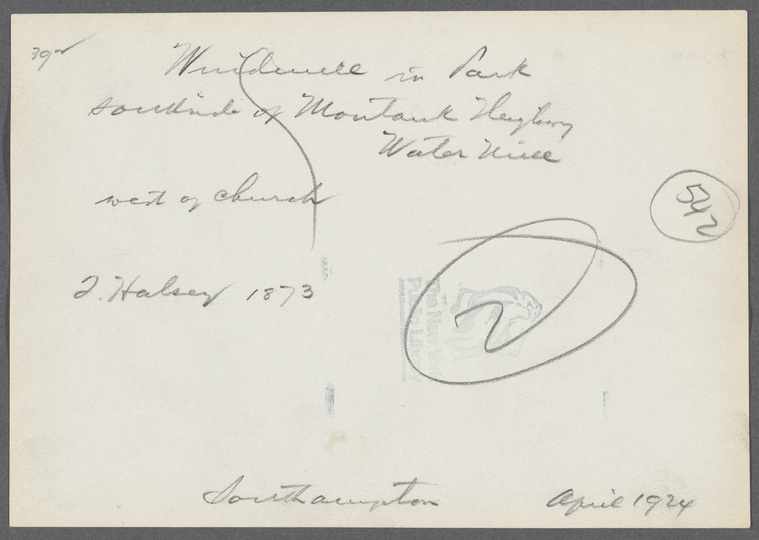 39
Windmill in Park
southside of Montauk Highway
Water Mill
west of church
542
J. Halsey 1873
The New York
Public Library
2
Southampton
April 1924